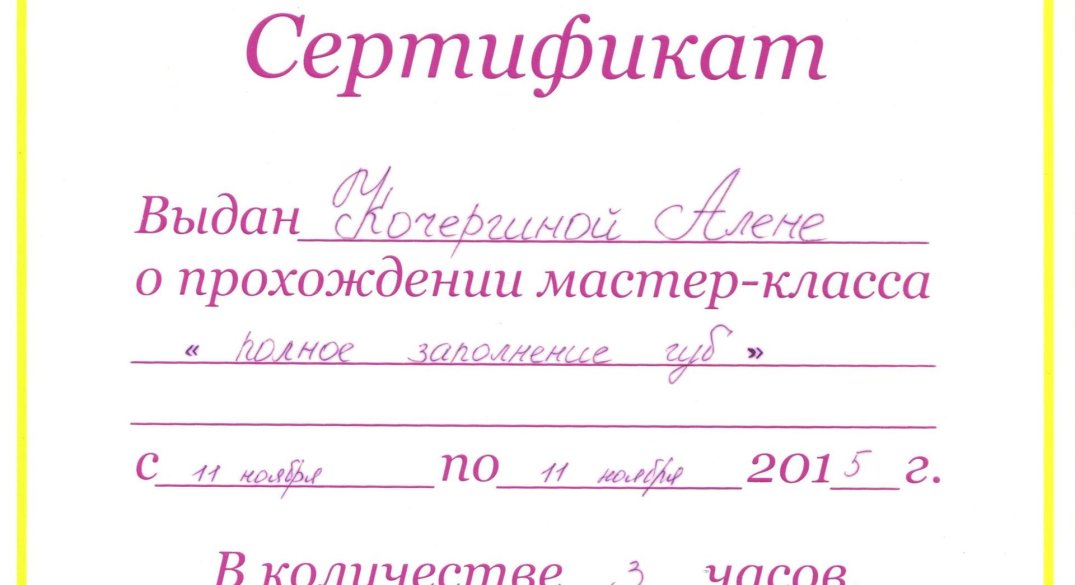 Сертификат
Выдан Кочергиной Алене
о прохождении мастер-класса
« полное заполнение губ »
с 11 ноября по 11 ноября 2015 г.
В количестве 3 часов